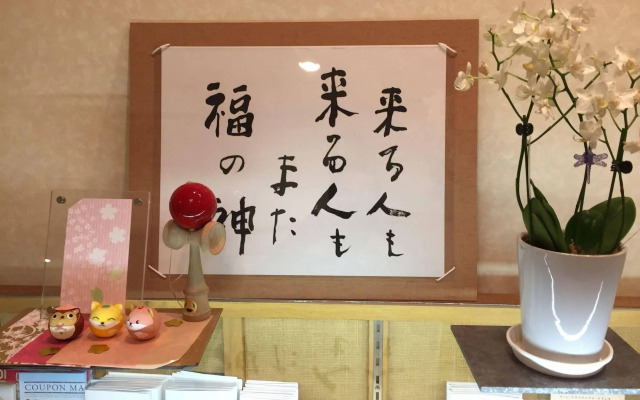 来る人も
来る人も
また
福の神
COUPON MA